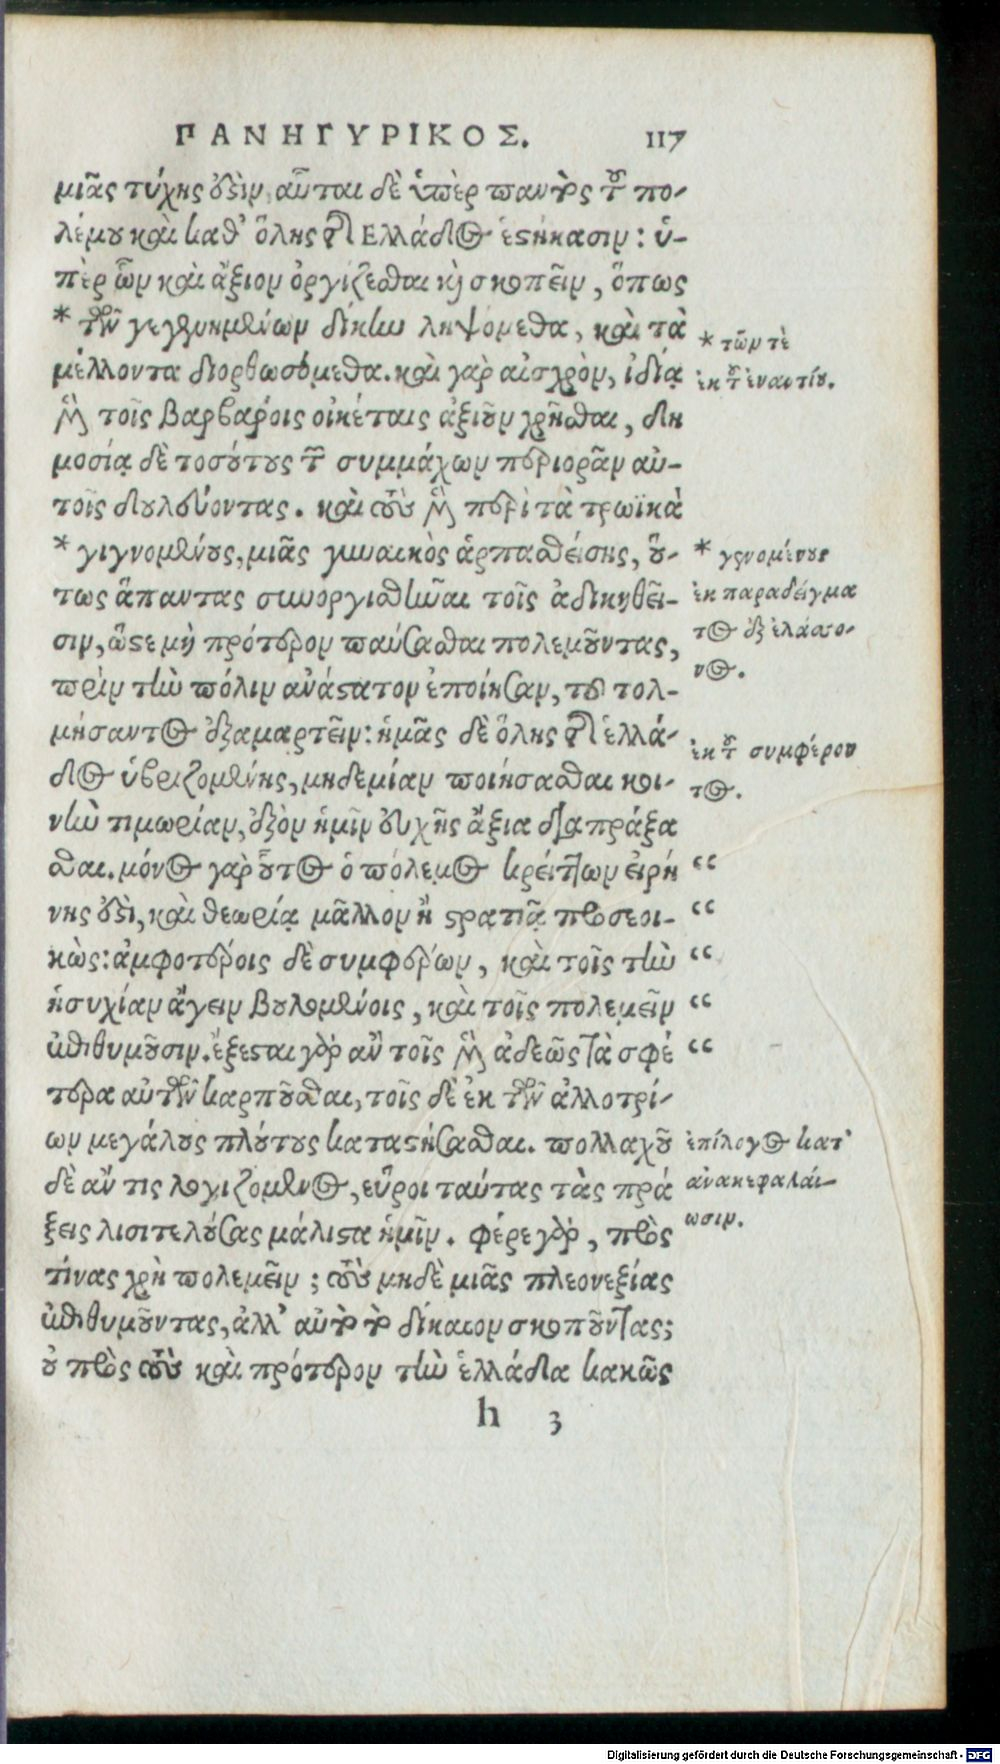 ΠΑΝΗΓΥΡΙΚΟΣ. 117
μιᾶς τύχης ὐσὶν, αὗται δὲ ὑπὲρ παντὸς τοῦ πο-
λέμου καὶ καθ' ὅλης τῆς Ελλάδος ἑστήκασιν: ὑ-
πὲρ ὧν καὶ ἄξιον ὀργίζεσθαι καὶ σκοπεῖν, ὅπως
* τῶν γεγενημένων δίκην ληψόμεθα, καὶ τὰ
μέλλοντα διορθωσόμεθα. καὶ γὰρ αἰσχρὸν, ἰδίᾳ
μὲν τοῖς βαρβάροις οἰκέταις ἀξιοῦν χρῆσθαι, δη
μοσίᾳ δὲ τοσούτους τῶν συμμάχων περιορᾶν αὐ-
τοῖς δουλεύοντας. καὶ τοὺς μὲν περὶ τὰ τρωϊκὰ
* γιγνομένους, μιᾶς γυναικὸς ἁρπασθείσης, οὕ-
τως ἅπαντας συνοργισθῆναι τοῖς ἀδικηθεῖ-
σιν, ὥστε μὴ πρότερον παύσασθαι πολεμοῦντας,
πρὶν τὴν πόλιν ἀνάστατον ἐποίησαν, τοῦ τολ-
μήσαντος ἐξαμαρτεῖν: ἡμᾶς δὲ ὅλης τῆς ἑλλά-
δος ὑβριζομένης, μηδεμίαν ποιήσασθαι κοι-
νὴν τιμωρίαν, ἐξὸν ἡμῖν εὐχῆς ἄξια διαπράξα
σθαι. μόνος γὰρ οὗτος ὁ πόλεμος κρείττων εἰρή “
νης ἐστὶ, καὶ θεωρίᾳ μᾶλλον ἢ στρατιᾷ προσεοι- “
κὼς: ἀμφοτέροις δὲ συμφέρων, καὶ τοῖς τὴν “
ἡσυχίαν ἄγειν βουλομένοις, καὶ τοῖς πολεμεῖν “
ἐπιθυμοῦσιν. ἔξεσται γὰρ ἂν τοῖς μὲν ἀδεῶς τὰ σφέ “
τερα αὐτῶν καρποῦσθαι, τοῖς δὲ ἐκ τῶν ἀλλοτρί-
ων μεγάλους πλούτους καταστήσασθαι. πολλαχοῦ
δὲ ἄν τις λογιζόμενος, εὕροι ταύτας τὰς πρά
ξεις λισιτελούσας μάλιστα ἡμῖν. φέρε γὰρ, πρὸς
τίνας χρὴ πολεμεῖν; τοὺς μηδὲ μιᾶς πλεονεξίας
ἐπιθυμοῦντας, ἀλλ' αὐτὸ τὸ δίκαιον σκοποῦντας;
οὐ πρὸς τοὺς καὶ πρότερον τὴν ἑλλάδα κακῶς
h 3
* τῶν τὲ
ἐκ τοῦ ἐναντίου.
* γενομένους
ἐκ παραδείγμα
τος ἐξ ἐλάσσο-
νος.
ἐκ τοῦ συμφέρον
τος.
ἐπίλογος κατ'
ἀνακεφαλαί-
ωσιν.
Digitalisierung gefördert durch die Deutsche Forschungsgemeinschaft - DFG